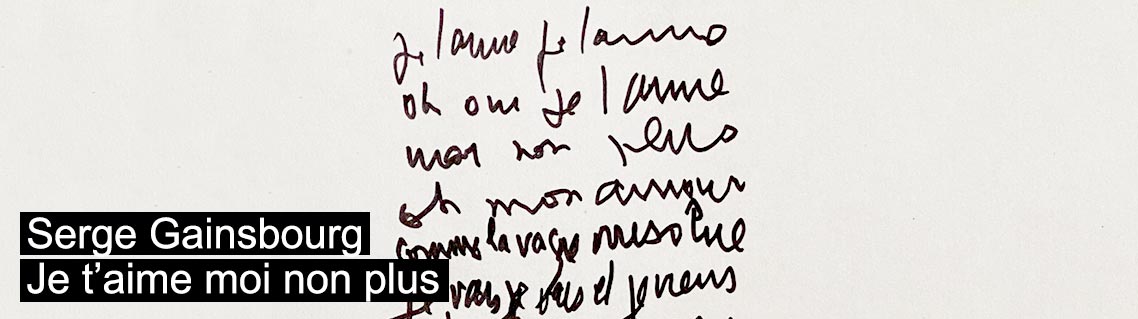 je t'aime je t'aime
oh oui je t'aime
moi non plus
oh mon amour
comme la vague irrésolue
je vais je vais et je viens
Serge Gainsbourg
Je t’aime moi non plus